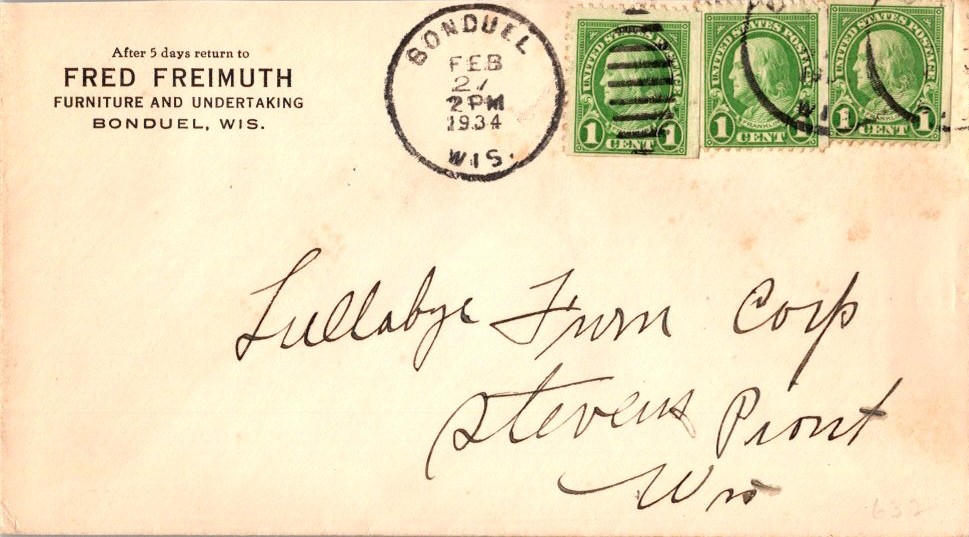 After 5 days return to
FRED FREIMUTH
FURNITURE AND UNDERTAKING
BONDUEL, WIS.
BONDUEL
FEB
27
2 PM
1934
WIS.
UNITED STATES POSTAGE
1 CENT 1
UNITED STATES POSTAGE
FRANKLIN
1 CENT 1
UNITED STATES POSTAGE
FRANKLIN
1 CENT 1
Lullabye Furn Corp
Stevens Piont
Wis
632